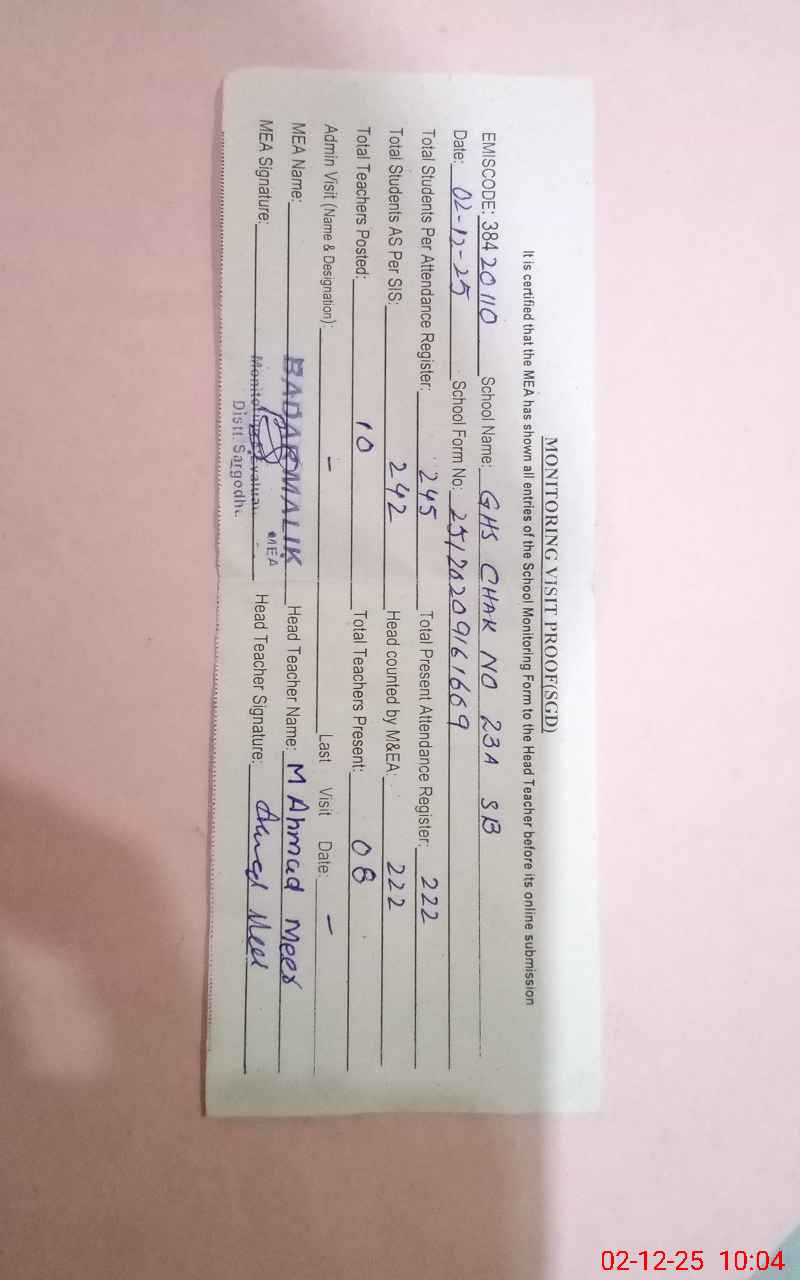 MONITORING VISIT PROOF(SGD)
It is certified that the MEA has shown all entries of the School Monitoring Form to the Head Teacher before its online submission
EMISCODE: 38420110 School Name: GHS CHAK NO 23A SB
Date: 02-12-25 School Form No: 251202091661669
Total Students Per Attendance Register: 245 Total Present Attendance Register: 222
Total Students AS Per SIS: 242 Head counted by M&EA: 222
Total Teachers Posted: 10 Total Teachers Present: 08
Admin Visit (Name & Designation): - Last Visit Date: -
MEA Name: BADAR MALIK Head Teacher Name: M Ahmad Meer
MEA
MEA Signature: Head Teacher Signature: Ahmed Meer
Distt. Sargodha
02-12-25 10:04